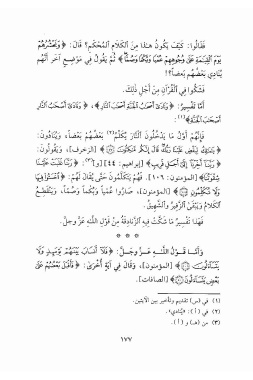 فقالوا: كيف يكون هذا من الكلام المحكم؟ قال: ﴿وَنَحْشُرُهُمْ
يَوْمَ الْقِيَامَةِ عَلَى وُجُوهِهِمْ عُمْيًا وَبُكْمًا وَصُمًّا﴾ ثم يقول في موضع آخر أنهم
ينادي بعضهم بعضاً؟!
فشكوا في القرآن من أجل ذلك.
أما تفسير: ﴿وَنَادَى أَصْحَابُ الْجَنَّةِ أَصْحَابَ النَّارِ﴾، ﴿وَنَادَى أَصْحَابُ النَّارِ
أَصْحَابَ الْجَنَّةِ﴾(١):
فإنهم أول ما يدخلون النار يكلم(٢) بعضهم بعضاً، وينادون:
﴿يَا مَالِكُ لِيَقْضِ عَلَيْنَا رَبُّكَ قَالَ إِنَّكُم مَّاكِثُونَ﴾ [الزخرف]، ويقولون:
﴿رَبَّنَا أَخِّرْنَا إِلَى أَجَلٍ قَرِيبٍ﴾ [إبراهيم: ٤٤] [و](٣): ﴿رَبَّنَا غَلَبَتْ عَلَيْنَا
شِقْوَتُنَا﴾ [المؤمنون: ١٠٦]. فهم يتكلمون حتى يقال لهم: ﴿اخْسَئُوا فِيهَا
وَلَا تُكَلِّمُونِ﴾ [المؤمنون]، صاروا عمياً وبكماً وصماً، وينقطع
الكلام ويبقى الزفير والشهيق.
فهذا تفسير ما شكت فيه الزنادقة من قول الله عز وجل.
* * *
وأما قول الله عز وجل: ﴿فَلَا أَنسَابَ بَيْنَهُمْ يَوْمَئِذٍ وَلَا
يَتَسَاءَلُونَ﴾ [المؤمنون]، وقال في آية أخرى: ﴿فَأَقْبَلَ بَعْضُهُمْ عَلَى
بَعْضٍ يَتَسَاءَلُونَ﴾ [الصافات].
(١) في (س) تقديم وتأخير بين الآيتين.
(٢) في (أ):
(٣) من (هـ) و (أ).
١٧٧